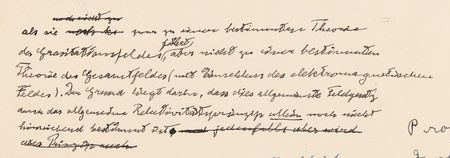 als sie zwar zu einer bestimmten Theorie
des Gravitationsfeldes führt, aber nicht zu einer bestimmten
Theorie des Gesamtfeldes (mit Einschluss des elektromagnetischen
Feldes). Der Grund liegt darin, dass das allgemeine Feldgesetz
durch das allgemeine Relativitätsprinzip allein noch nicht
hinreichend bestimmt ist, und jedenfalls aber wird
das Prinzip auch
Pro